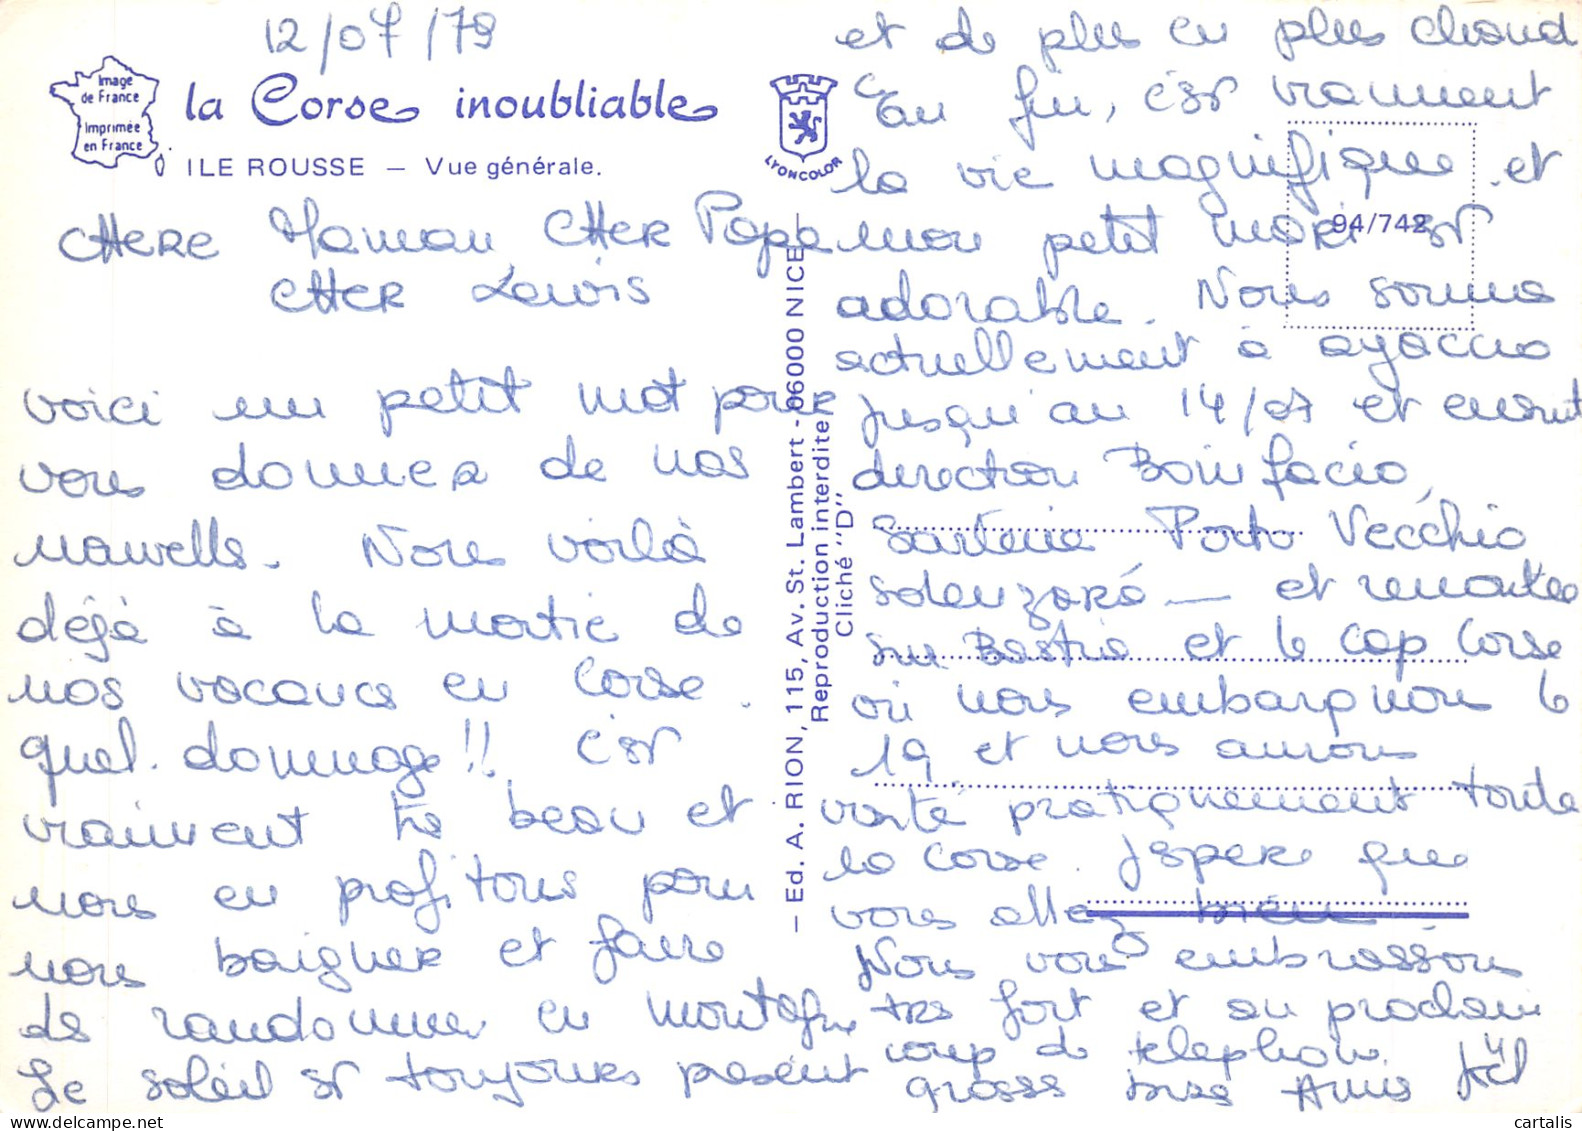 12/07/79
Image
de France
Imprimée
en France
la Corse inoubliable
ILE ROUSSE — Vue générale.
LYONCOLOR
CHERE Maman, CHER Papa
CHER Lewis
voici un petit mot pour
vous donner de nos
nouvelles. Nous voilà
déjà à la moitié de
nos vacances en Corse.
quel dommage!! C'est
vraiment très beau et
nous en profitons pour
nous baigner et faire
des randonnées en montagne
Le soleil est toujours présent
— Ed. A. RION, 115, Av. St. Lambert - 06000 NICE —
Reproduction interdite
Cliché "D"
94/742
et de plus en plus chaud
Enfin, c'est vraiment
la vie magnifique et
mon petit mari est
adorable. Nous sommes
actuellement à ajaccio
jusqu'au 14/07 et ensuite
direction Bonifacio,
Sartène Porto Vecchio
solenzara — et remontée
sur Bastia et le Cap Corse
où nous embarquons le
19 et nous aurons
visité pratiquement toute
la corse. J'espère que
vous allez bien
Nous vous embrassons
très fort et au prochain
coup de téléphone.
grosses bises
cartalis